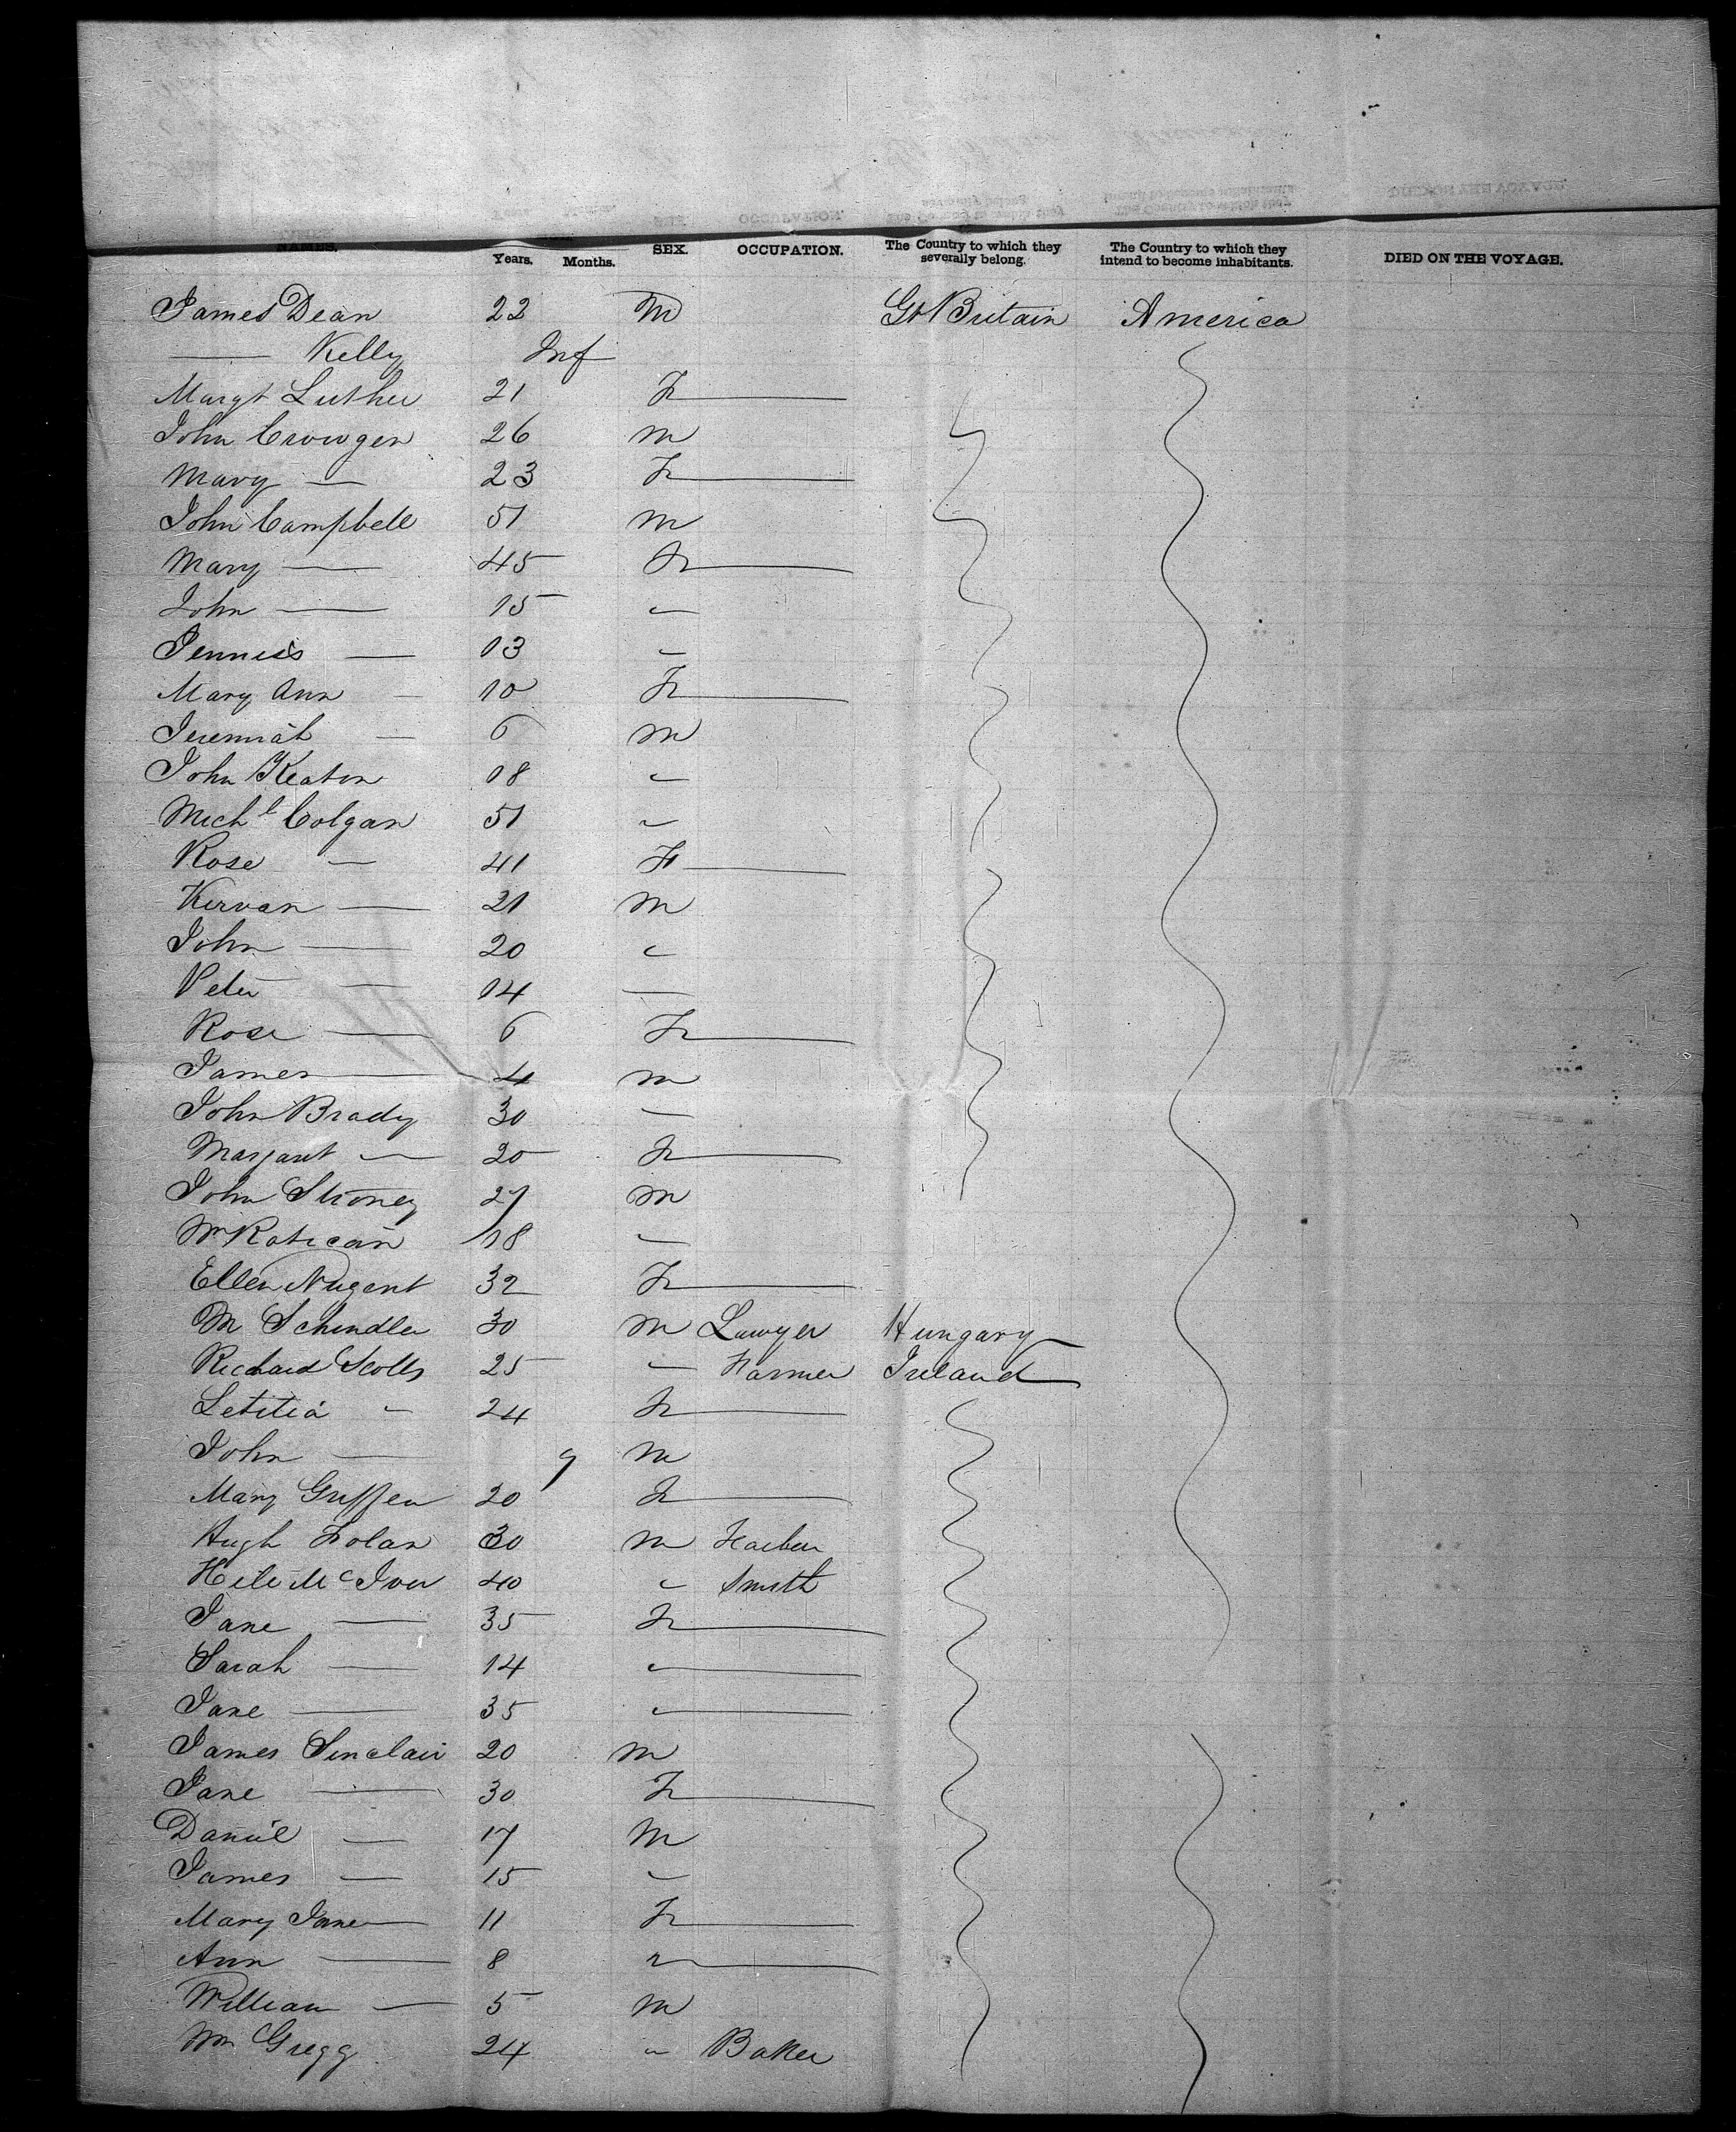 NAMES. Years. Months. SEX. OCCUPATION. The Country to which they severally belong. The Country to which they intend to become inhabitants. DIED ON THE VOYAGE.
James Dean 22 M Gt Britain America
—— Kelly Inf
Margt Luther 21 F
John Crowgen 26 M
Mary — 23 F
John Campbell 51 M
Mary — 45 F
John — 15 "
Jenniss — 13 "
Mary Ann — 10 F
Jeremiah — 6 M
John Keaton 18 "
Michl Colgan 51 "
Rose — 41 F
Kervan — 21 M
John — 20 "
Peter — 14 "
Rose — 6 F
James — 4 M
John Brady 30 "
Margaret — 20 F
John Stroney 27 M
Wm Ratican 18 "
Ellen Nugent 32 F
M Schindler 30 M Lawyer Hungary
Richard Scotts 25 " Farmer Ireland
Letitia — 24 F
John — 9 M
Mary Griffen 20 F
Hugh Folan 30 M
McIver 40 " Smith
Jane — 35 F
Sarah — 14 "
Jane — 35 "
James Sinclair 20 M
Jane — 30 F
Daniel — 17 M
James — 15 "
Mary Jane — 11 F
Ann — 8 "
William — 5 M
Wm Gregg 24 " Baker